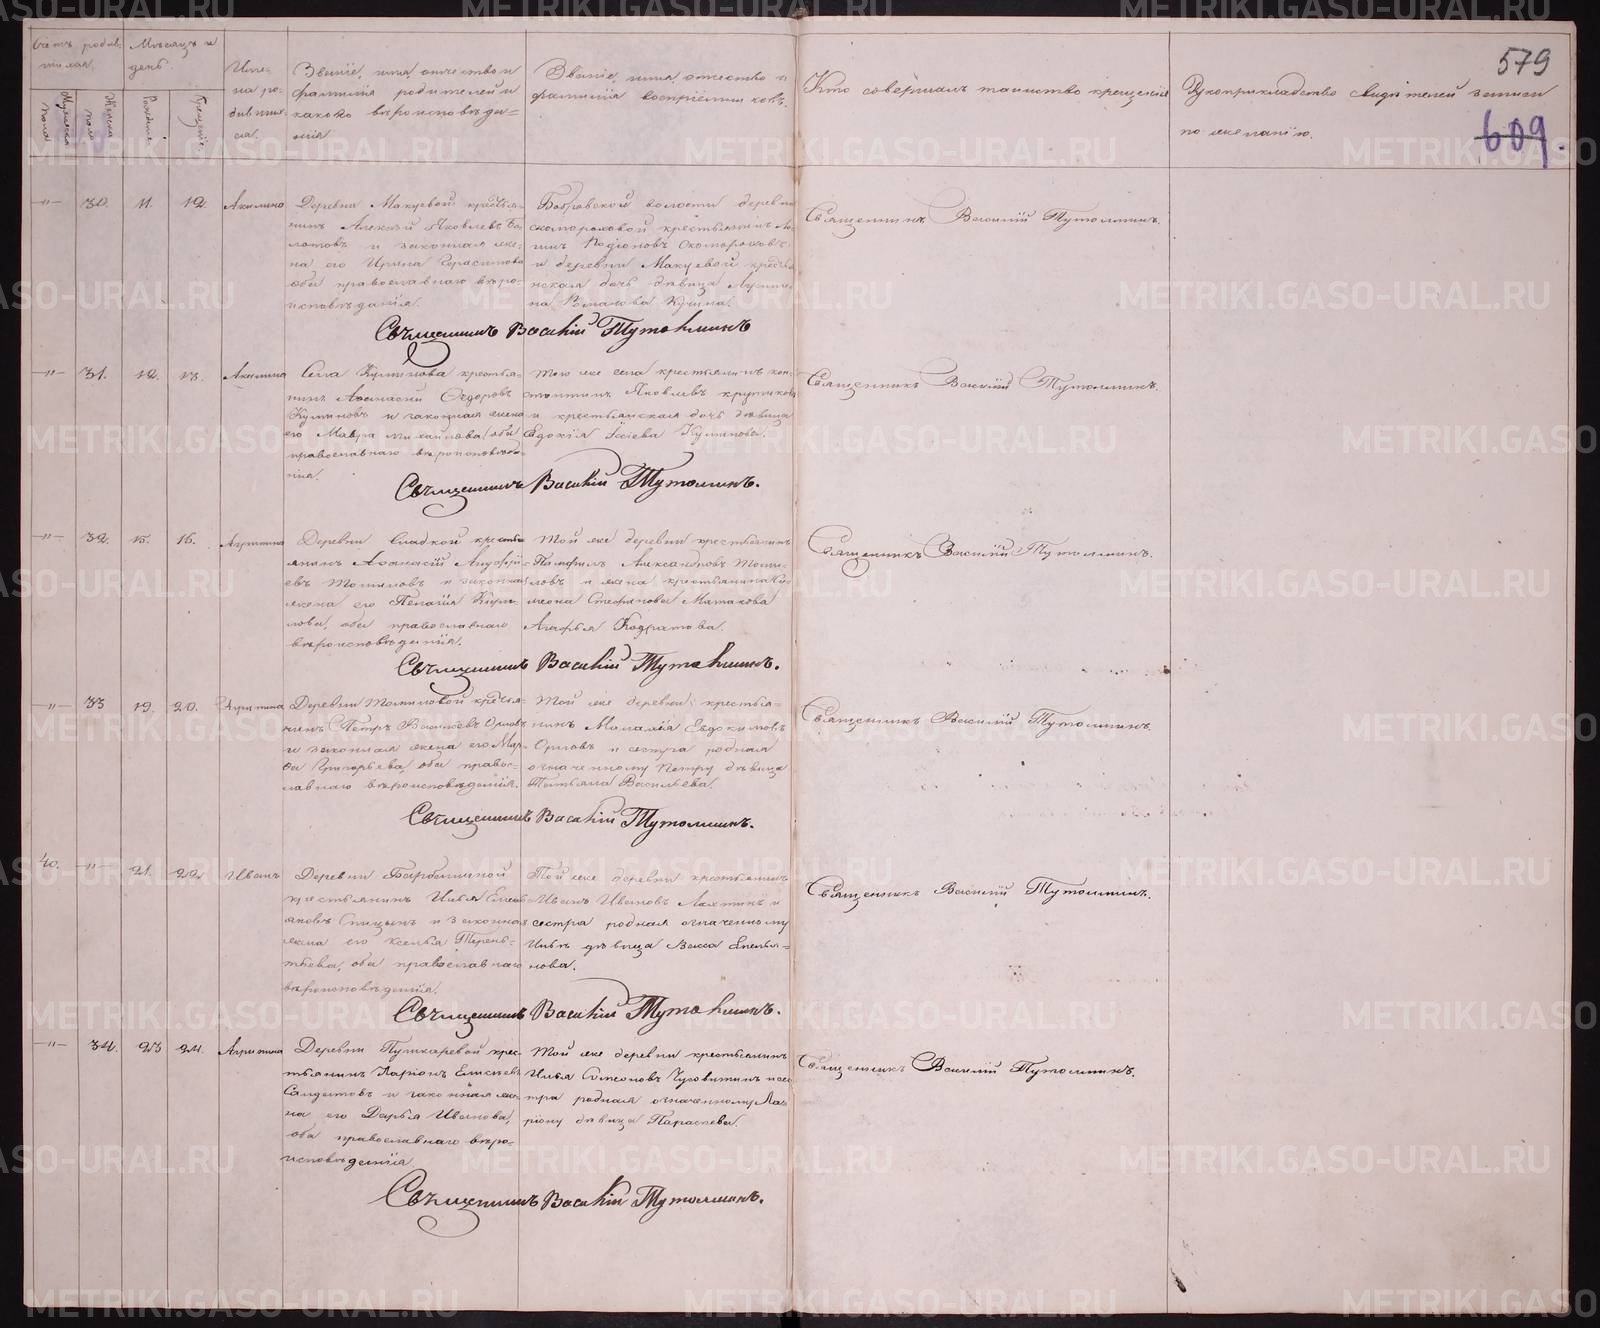 579
609.
Счетъ родив-
шихся.
Мѣсяцъ и
день.
Мужеска
пола
Женска
пола
Рожденіе
Крещеніе
Име-
на ро-
дивших-
ся.
Званіе, имя, отчество и
фамилія родителей и
какого вѣроисповѣда-
нія
Званіе, имя, отчество и
фамилія воспріемниковъ.
Кто совершалъ таинство крещенія
Рукоприкладство свидѣтелей записи
по желанію.
—"— 30. 11. 12. Акилина
Деревни Макуевой крестья-
нинъ Алексѣй Яковлевъ Бо-
лотовъ и законная же-
на его Ирина Герасимова
оба православнаго вѣро-
исповѣданія.
Бобровской волости деревни
Скомороховой крестьянинъ
Родіоновъ Скомороховъ
и деревни Макуевой крестья-
нская дочь дѣвица
на Романова
Священникъ Василій Тутолминъ.
Священникъ Василій Тутолминъ
—"— 31. 12. 13. Акилина
Села Куминова крестья-
нинъ Аѳанасій Ѳедоровъ
Куминовъ и законная жена
его Мавра Михайлова, оба
православнаго вѣроисповѣда-
нія.
Того же села крестьянинъ Кон-
стантинъ Яковлевъ
и крестьянская дочь дѣвица
Евдокія Куминова.
Священникъ Василій Тутолминъ.
Священникъ Василій Тутолминъ.
—"— 32. 15. 16. Агрипина
Деревни Сладкой крестья-
янинъ Аѳанасій
евъ Томиловъ и законная
жена его Пелагія Кирил-
лова, оба православнаго
вѣроисповѣданія.
Той же деревни крестьянинъ
Памфилъ Александровъ Томи-
ловъ и жена крестьянина
Стефанова
Агафья Кодратова.
Священникъ Василій Тутолминъ.
Священникъ Василій Тутолминъ.
—"— 33 19. 20. Агрипина
Деревни Томиловой крестья-
нинъ Петръ Васильевъ Орловъ
и законная жена его Мар-
Григорьева, оба правос-
лавнаго вѣроисповѣданія.
Той же деревни крестья-
нинъ Малахія Евдокимовъ
Орловъ и сестра родная
означенному Петру дѣвица
Татьяна Васильева.
Священникъ Василій Тутолминъ.
Священникъ Василій Тутолминъ.
40. —"— 21. 22 Иванъ
Деревни
крестьянинъ Илья Емель-
яновъ Спицынъ и законная
жена его Ксенья Терень-
тьева, оба православнаго
вѣроисповѣданія.
Той же деревни крестьянинъ
Иванъ Ивановъ Лахтинъ и
сестра родная означенному
Ильѣ дѣвица Васса Емелья-
нова.
Священникъ Василій Тутолминъ.
Священникъ Василій Тутолминъ.
—"— 34. 23 24. Агрипина
Деревни Пушкаревой крес-
тьянинъ Ларіонъ Елисѣевъ
и законная же-
на его Дарья Иванова,
оба православнаго вѣро-
исповѣданія
Той же деревни крестьянинъ
Илья Симеоновъ Чусовитинъ и сес-
тра родная означенному Ла-
ріону дѣвица Параскева.
Священникъ Василій Тутолминъ.
Священникъ Василій Тутолминъ.
METRIKI.GASO-URAL.RU